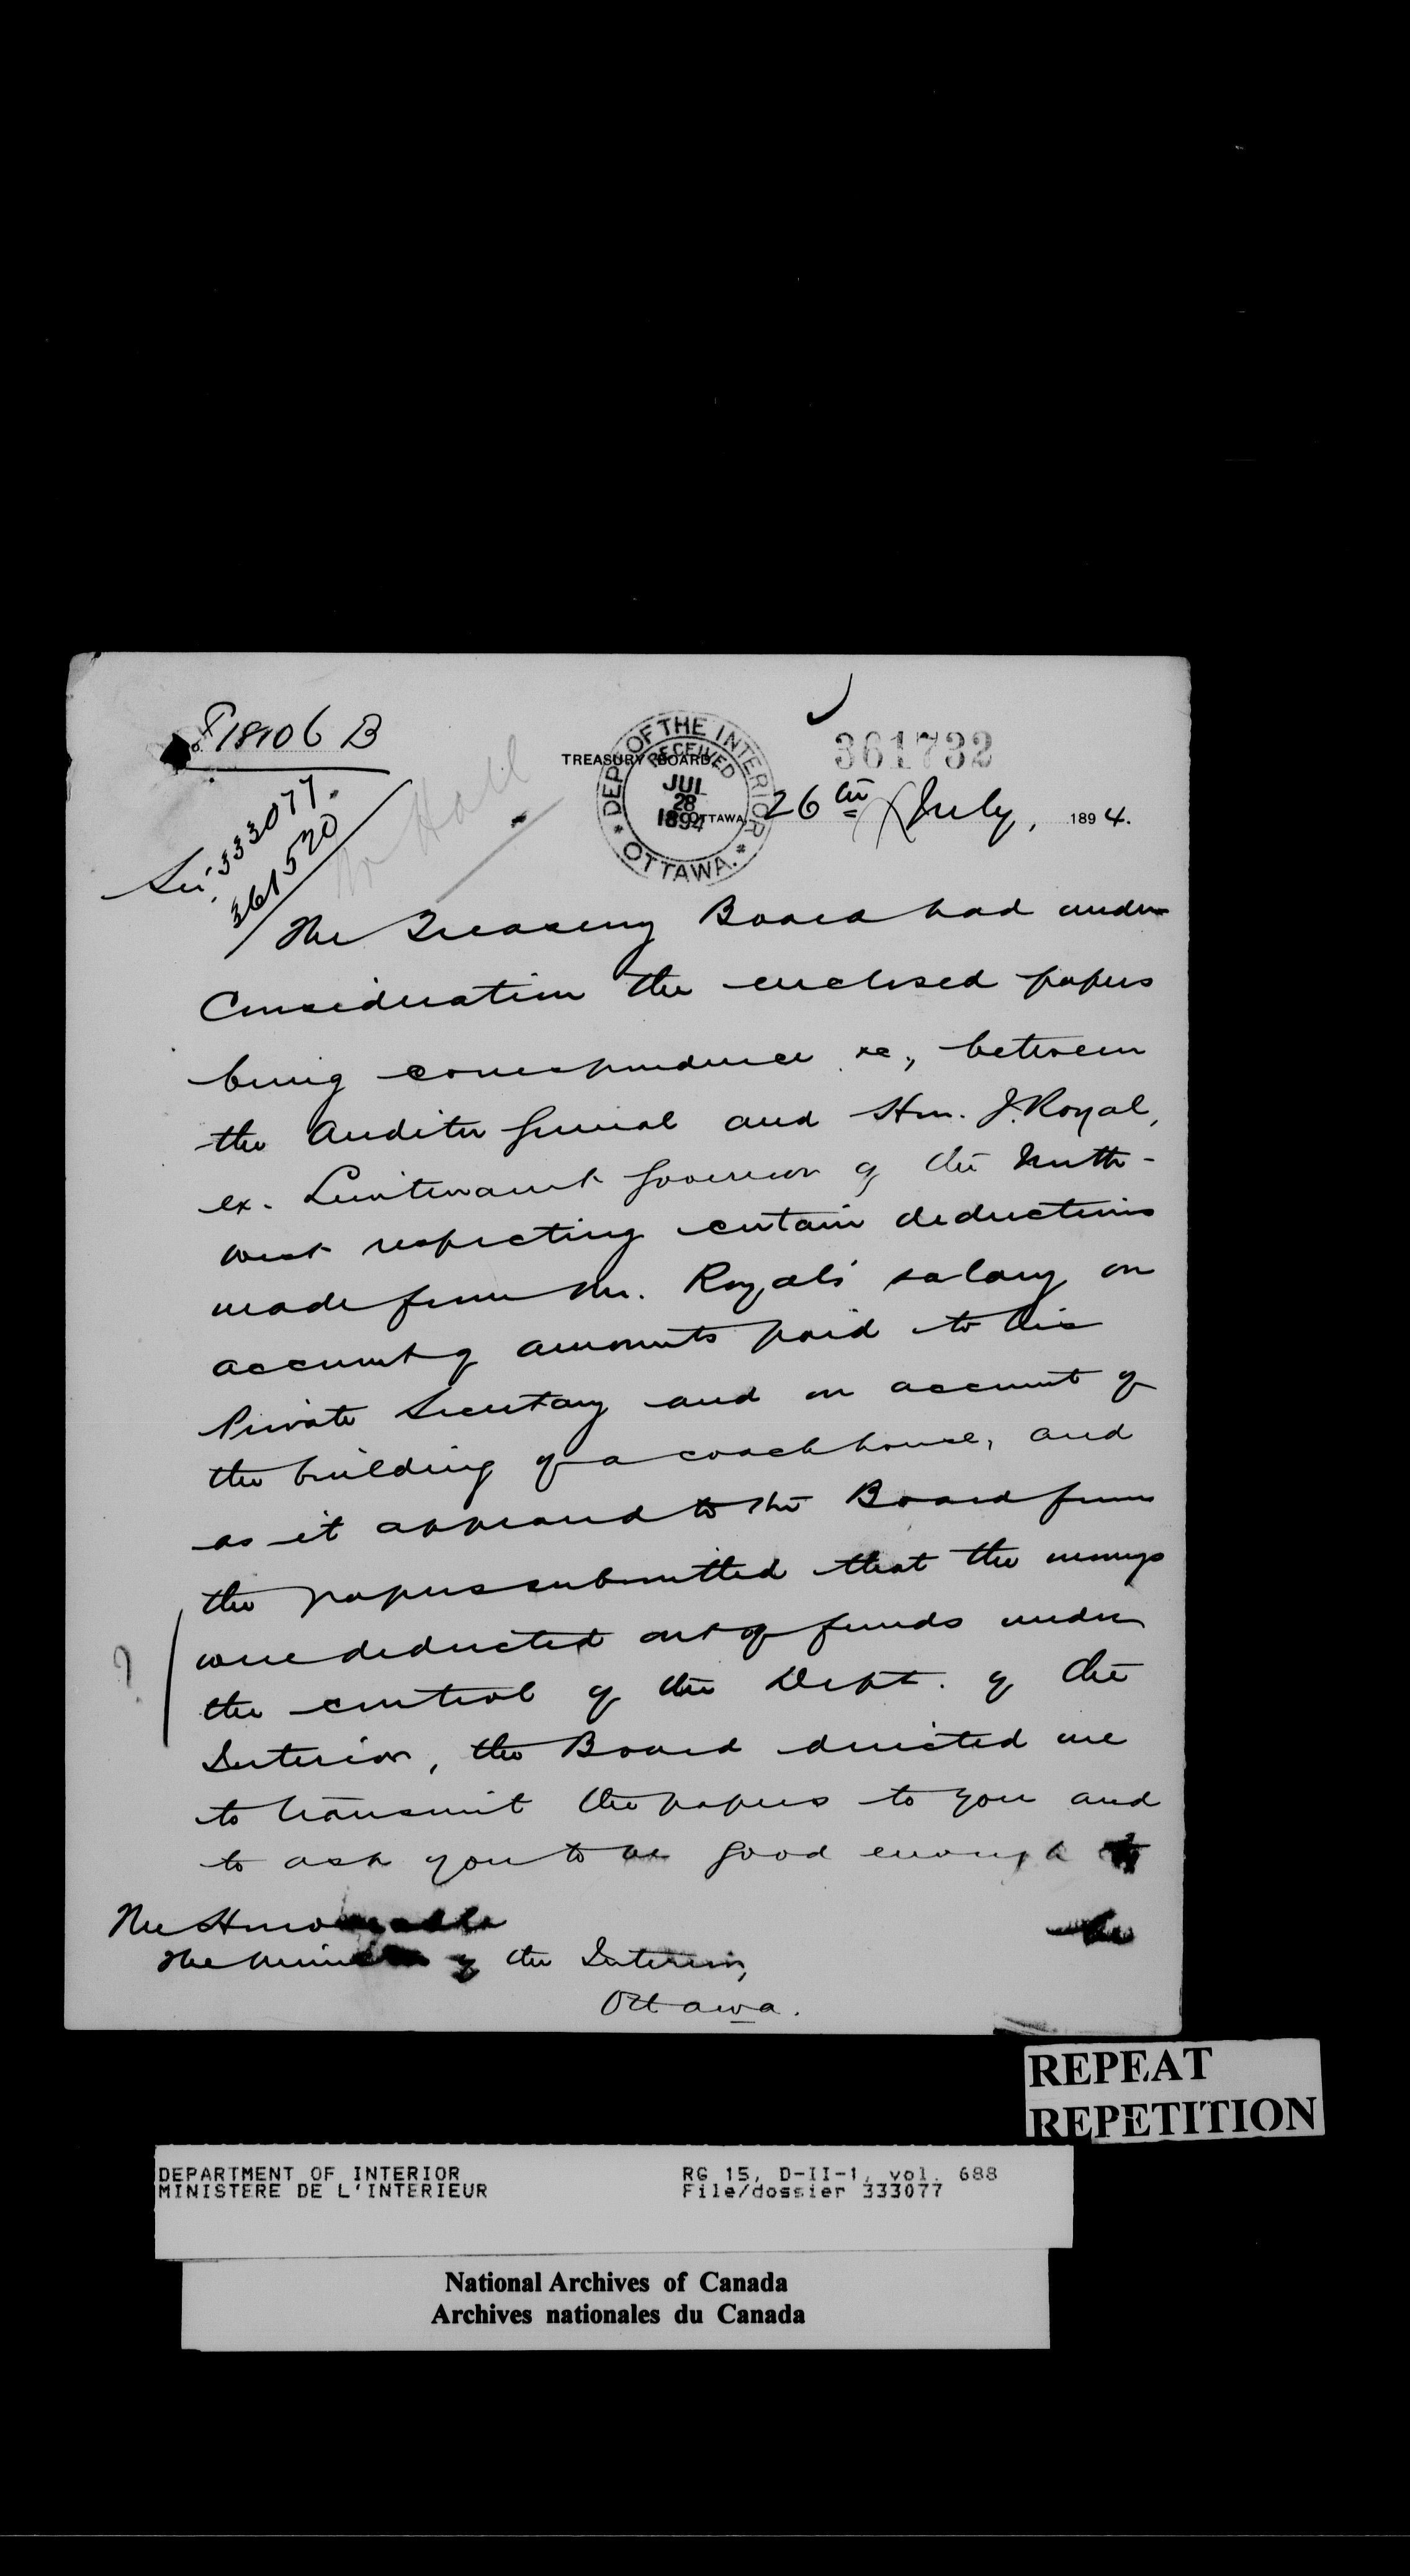 18106 B
TREASURY BOARD,
DEPT OF THE INTERIOR
RECEIVED
JUL
28
1894
OTTAWA.
361732
OTTAWA, 26th July, 1894.
Mr Hall
333077.
361520
Sir,
The Treasury Board had under
Consideration the enclosed papers
being correspondence &c., between
the Auditor General and Hon. J. Royal,
ex. Lieutenant Governor of the North-
west respecting certain deductions
made from Mr. Royal's salary on
account of amounts paid to his
Private Secretary and on account of
the building of a coach house, and
as it appeared to the Board from
the papers submitted that the moneys
?
were deducted out of funds under
the control of the Dept. of the
Interior, the Board directed me
to transmit the papers to you and
to ask you to be good enough to
be
The Honorable
The Minister of the Interior,
Ottawa.
REPEAT
REPETITION
DEPARTMENT OF INTERIOR
MINISTERE DE L'INTERIEUR
RG 15, D-II-1, vol. 688
File/dossier 333077
National Archives of Canada
Archives nationales du Canada